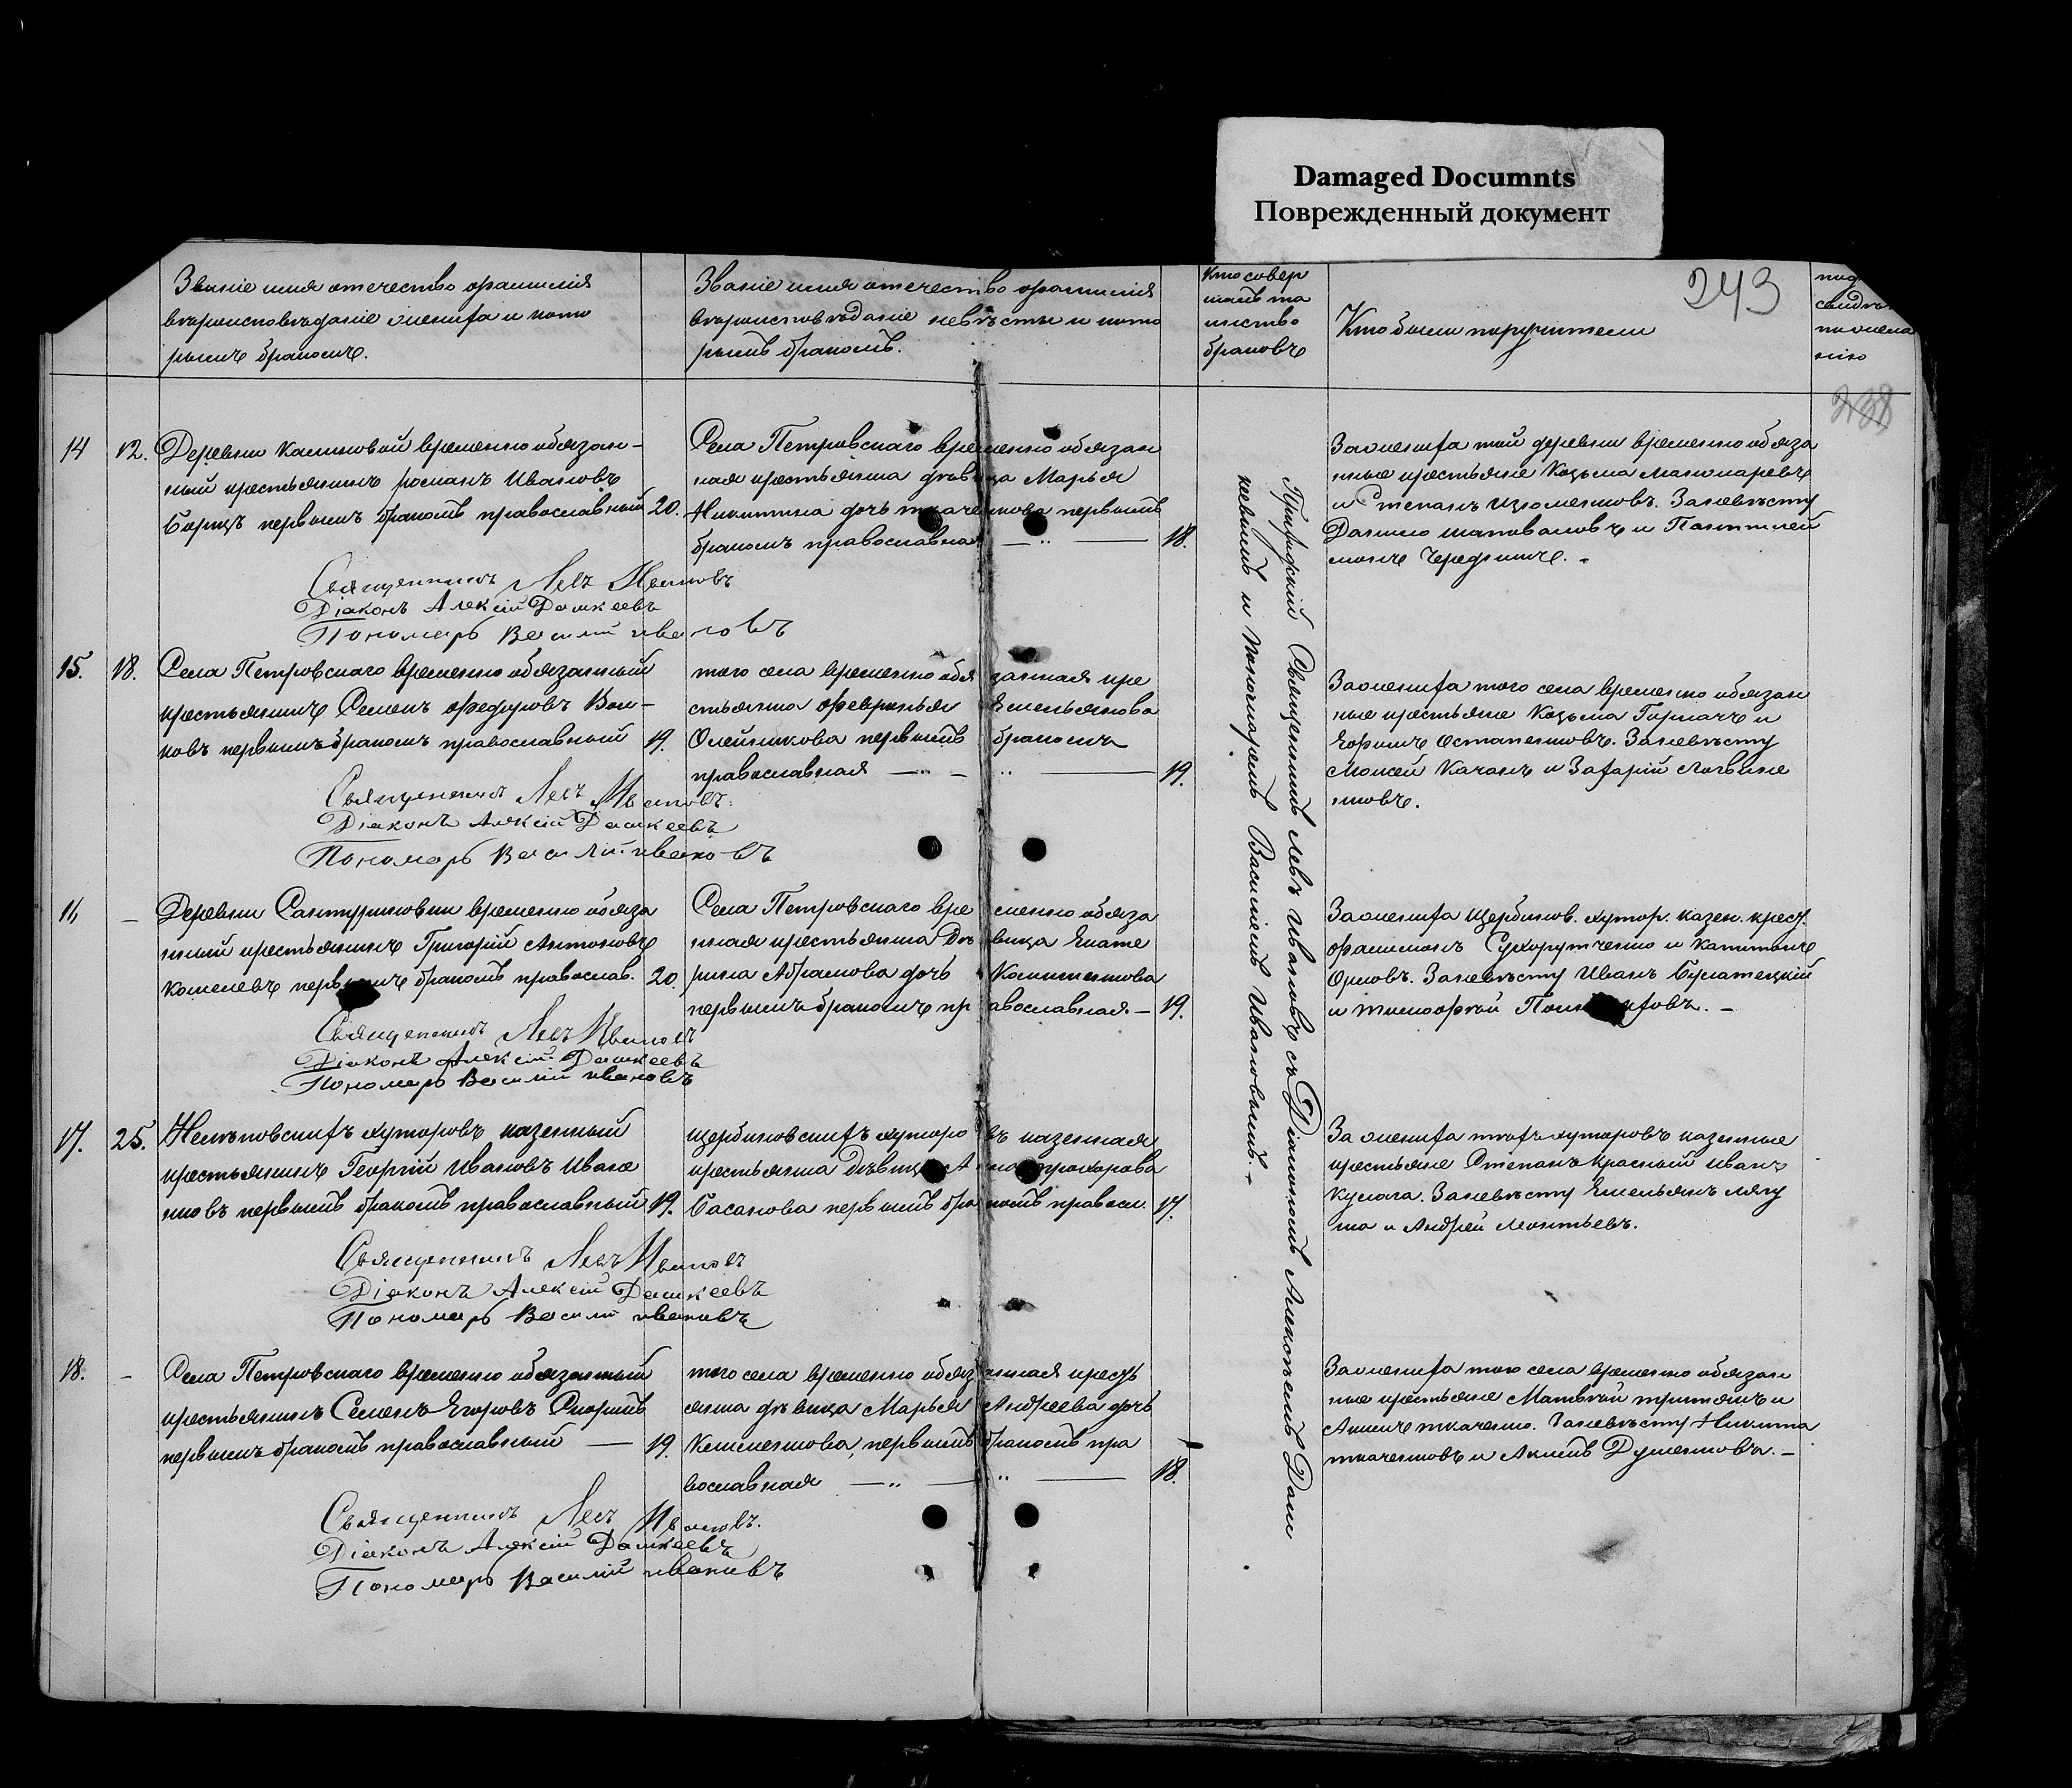 Damaged Documnts
Поврежденный документ
243
238
Званіе имя отечество фамилія
вѣроисповѣданіе жениха и кото
рымъ бракомъ.
Званіе имя отечество фамилія
вѣроисповѣданіе невѣсты и кото
рымъ бракомъ.
Кто совер
шалъ та
инство
браковъ
Кто были поручители
14
12.
Деревни Калиновой временно обязан-
ный крестьянинъ Романъ Ивановъ
первымъ бракомъ православный
20.
Села Петровскаго временно обязан
ная крестьянка дѣвица Марья
Никитина дочь Ткаченкова первымъ
бракомъ православная
18.
За жениха той деревни временно обяза
нные крестьяне Козьма
и Степанъ За невѣсту
Данило Шаповаловъ и Пантелей
монъ Чередникъ.
Священникъ Левъ Ивановъ
Діаконъ Алексій Дашкеевъ
Пономарь Василій Ивановъ
15.
18.
Села Петровскаго временно обязанный
крестьянинъ Семенъ Федоровъ Вол-
ковъ первымъ бракомъ православный
19.
того села временно обязанная кре
стьянка Февронья Емельянова
Олейникова первымъ бракомъ
православная
19.
За жениха того села временно обязан
ные крестьяне Козьма и
Ефимъ Остапенковъ. За невѣсту
Моисей Качанъ и Захарій Логвине
нковъ.
Священникъ Левъ Ивановъ.
Діаконъ Алексій Дашкеевъ
Пономарь Василій Ивановъ
16
Деревни временно обяза
нный крестьянинъ Григорій Антоновъ
Кошелевъ первымъ бракомъ православ.
20.
Села Петровскаго временно обяза
нная крестьянка Дѣвица Екате
рина Абрамова дочь
первымъ бракомъ православная.
19.
За жениха Щербинов. хутор. казен. крест.
Филимонъ Сухорутченко и Капитонъ
Орловъ. За невѣсту Иванъ
и Тимофей
Священникъ Левъ Ивановъ
Діаконъ Алексій Дашкеевъ
Пономарь Василій Ивановъ
17.
25.
хуторовъ казенный
крестьянинъ Георгій Ивановъ Ивана
нковъ первымъ бракомъ православный
19.
Щербиновскихъ хуторовъ казенная
крестьянка Дѣвица Прохорова
Басанова первымъ бракомъ правосл.
17.
За жениха тѣхъ хуторовъ казенные
крестьяне Степанъ Красный Иванъ
Кулага. За невѣсту Емельянъ Лягу
ша и Андрей Леонтьевъ.
Священникъ Левъ Ивановъ
Діаконъ Алексій Дашкеевъ
Пономарь Василій Ивановъ
18.
Села Петровскаго временно обязанный
крестьянинъ Семенъ Егоровъ
первымъ бракомъ православный
19.
того села временно обязанная крест
янка дѣвица Марья Андреева дочь
первымъ бракомъ пра
вославная
18.
За жениха того села временно обязан
ные крестьяне Матвѣй и
Ткаченко. За невѣсту Никита
Ткаченковъ и Акимъ
Священникъ Левъ Ивановъ.
Діаконъ Алексій Дашкеевъ
Пономарь Василій Ивановъ
Приходскій Священникъ Левъ Ивановъ съ Діакономъ Алексѣемъ Даш
кеевымъ и Пономаремъ Василіемъ Ивановымъ.